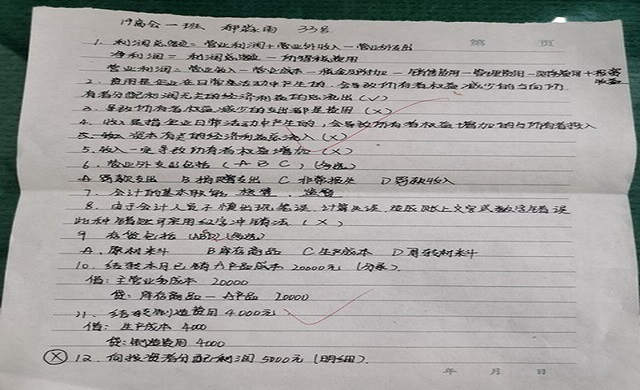 19高会一班 郝淼雨 33号
第 页
1. 利润总额 = 营业利润 + 营业外收入 - 营业外支出
净利润 = 利润总额 - 所得税费用
营业利润 = 营业收入 - 营业成本 - 税金及附加 - 销售费用 - 管理费用 - 财务费用 + 投资收益
2. 费用是企业在日常活动中产生的、会导致所有者权益减少的与向所
有者分配利润无关的经济利益的总流出 (√)
3. 导致所有者权益减少的支出都是费用 (×)
4. 收入是指企业日常活动中产生的,会导致所有者权益增加的与所有者投入
资本有关的经济利益总流入 (×)
5. 收入一定导致所有者权益增加 (×)
6. 营业外支出包括 (ABC) (多选)
A. 罚款支出 B 捐赠支出 C 非常损失 D 罚款收入
7. 会计的基本职能 核算、监督
8. 由于会计人员不慎出现笔误、计算失误、造成账上文字或数字错误
此种错账可采用红字冲销法 (×)
9 存货包括 (ABD) (多选)
A. 原材料 B 库存商品 C 生产成本 D 周转材料
10. 结转本月已销A产品成本 20000元 (分录).
借: 主营业务成本 20000
贷: 库存商品 - A产品 20000
11. 结转制造费用 4000元
借: 生产成本 4000
贷: 制造费用 4000
12. 向投资者分配利润 5000元 (明细).
年 月 日